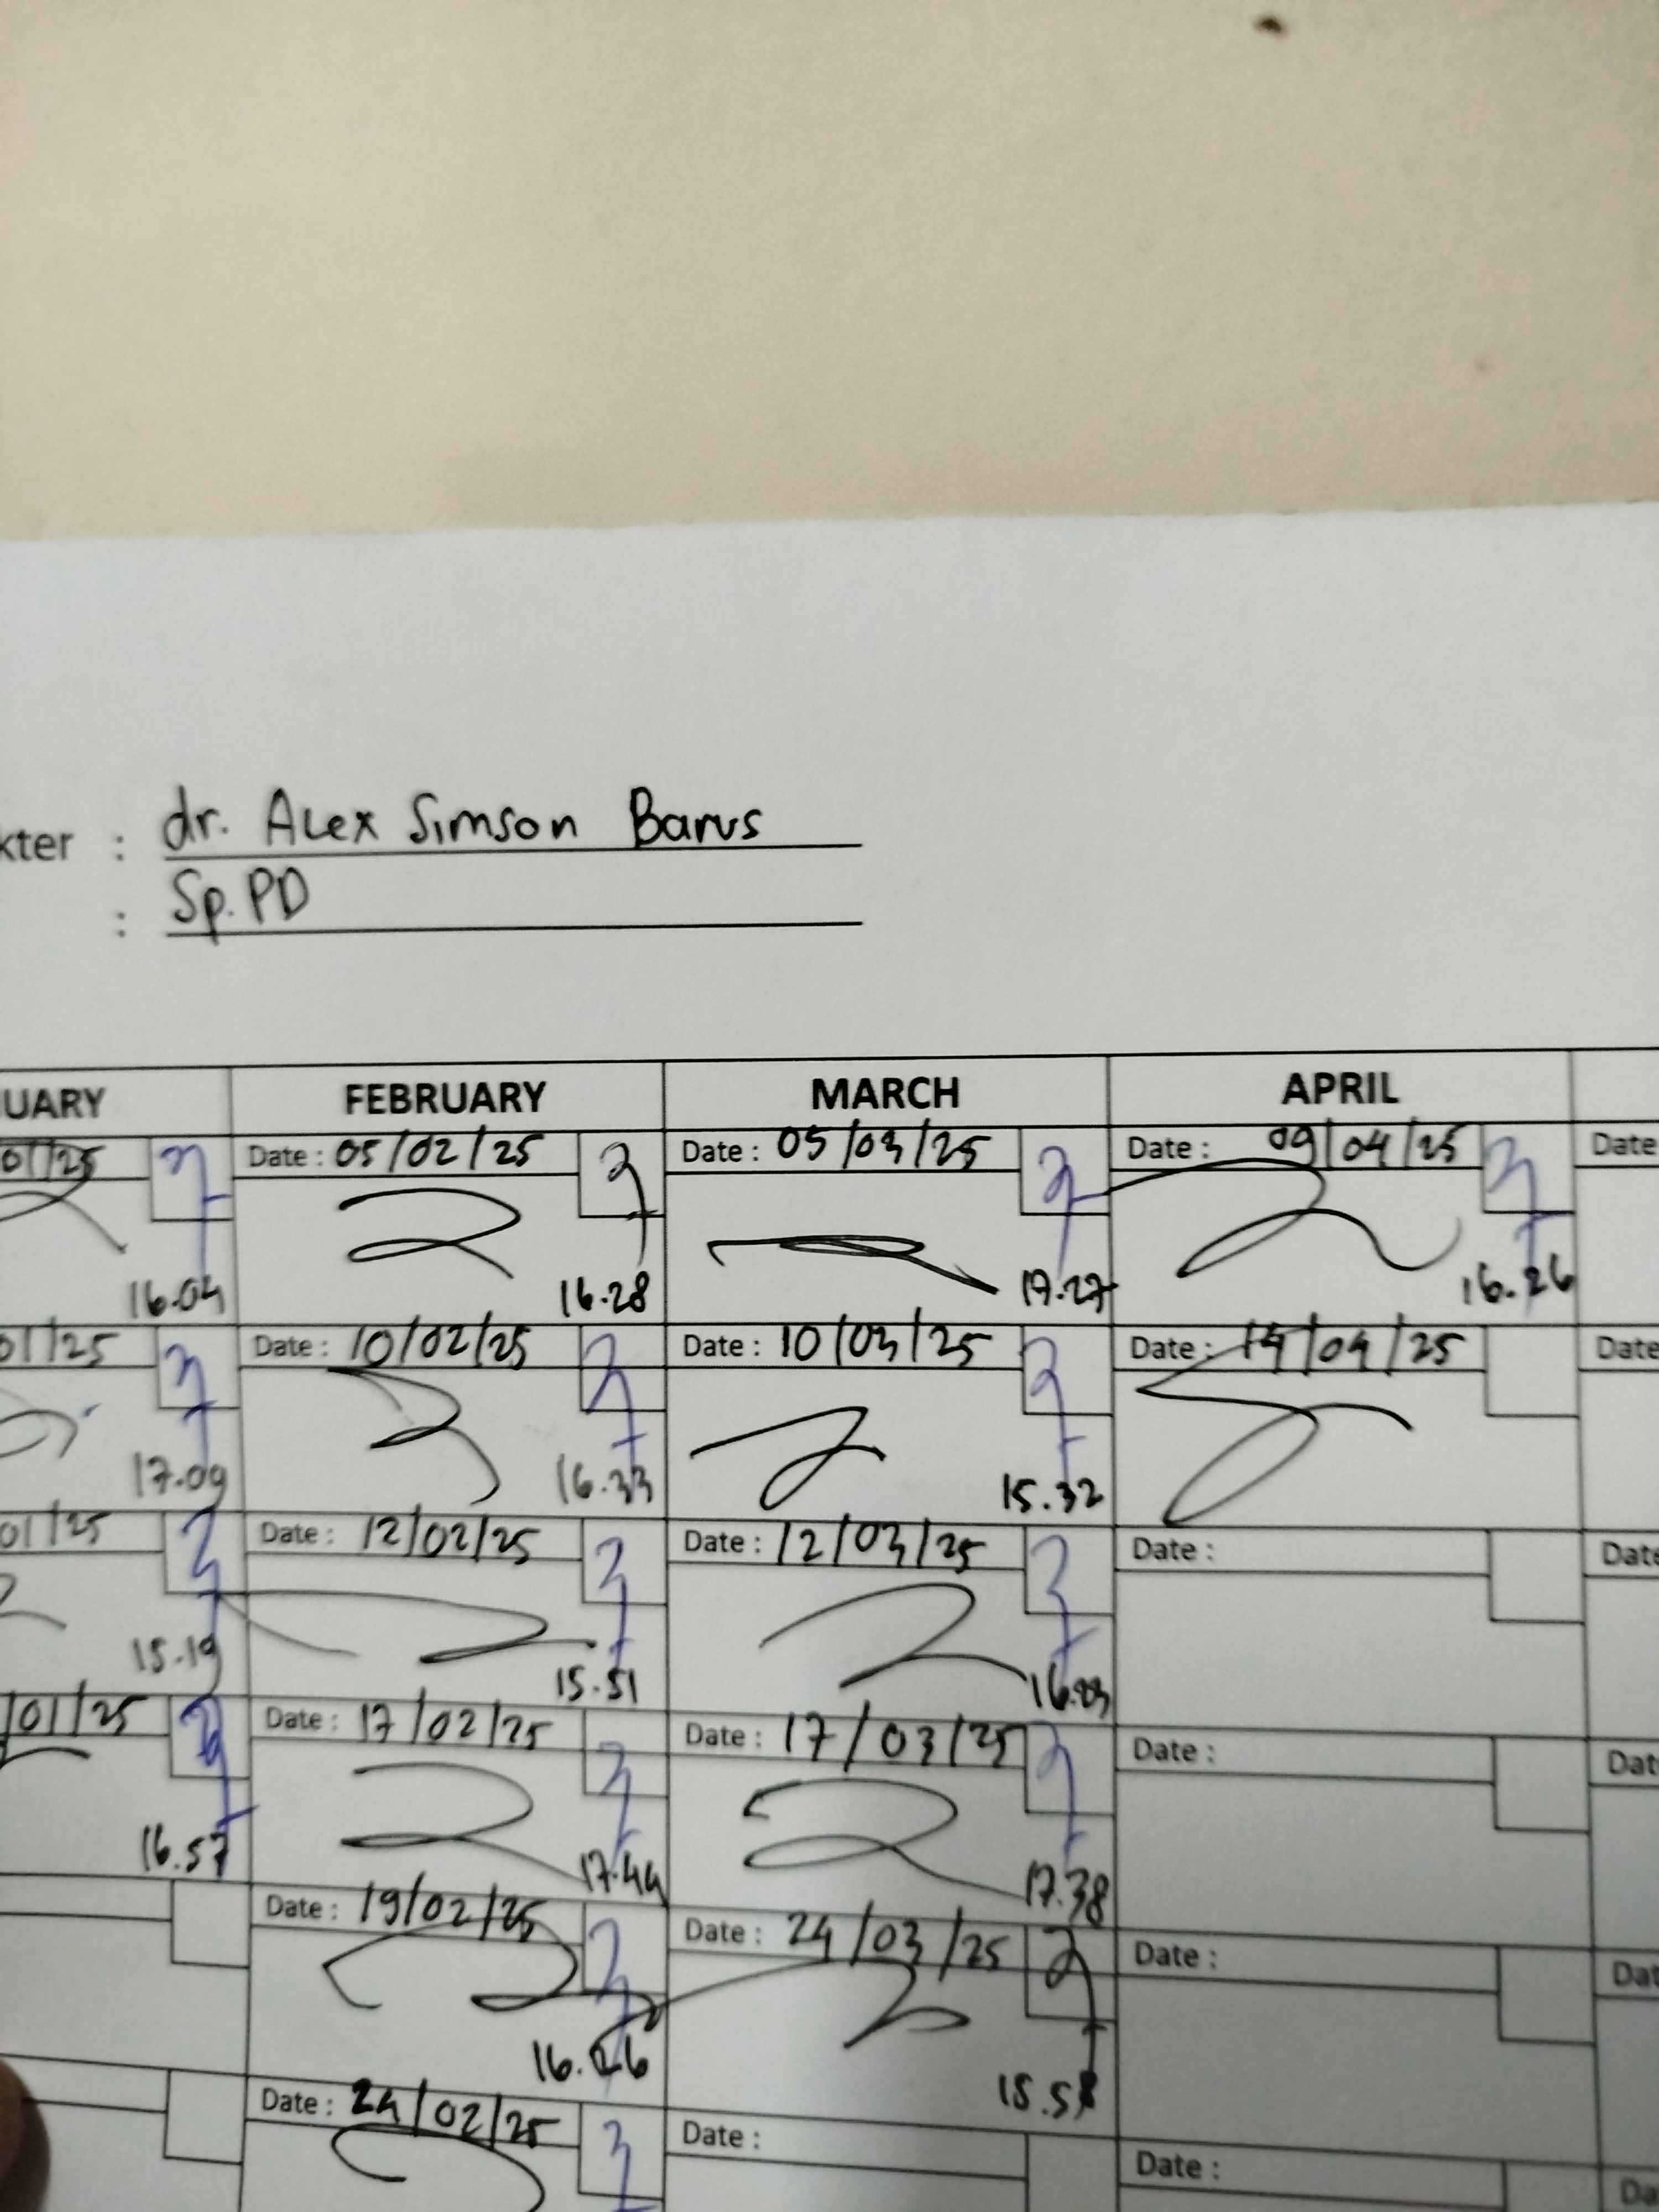 kter : dr. Alex Simson Barus
: Sp.PD
UARY FEBRUARY MARCH APRIL
01/25 Date : 05/02/25 Date : 05/03/25 Date : 09/04/25 Date
16.04 16.28 17.27 16.26
01/25 Date : 10/02/25 Date : 10/03/25 Date : 14/04/25 Date
17.09 16.33 15.32
01/25 Date : 12/02/25 Date : 12/03/25 Date : Date
15.19 15.51
/01/25 Date : 17/02/25 Date : 17/03/25 Date : Dat
16.57 17.44 17.38
Date : 19/02/25 Date : 24/03/25 Date : Dat
16.26 15.58
Date : 24/02/25 Date : Date : Da